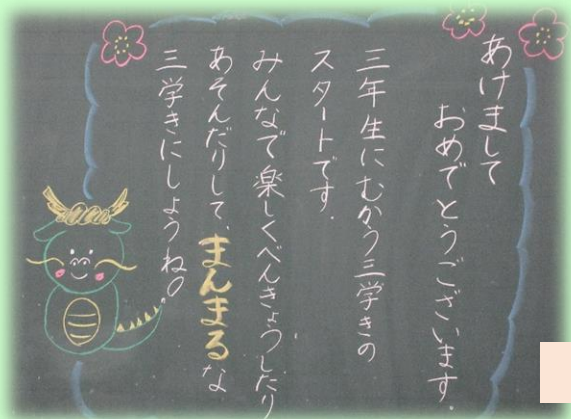 あけまして
おめでとうございます。
三年生にむかう三学きの
スタートです。
みんなで楽しくべんきょうしたり
あそんだりして、まんまるな
三学きにしようね。